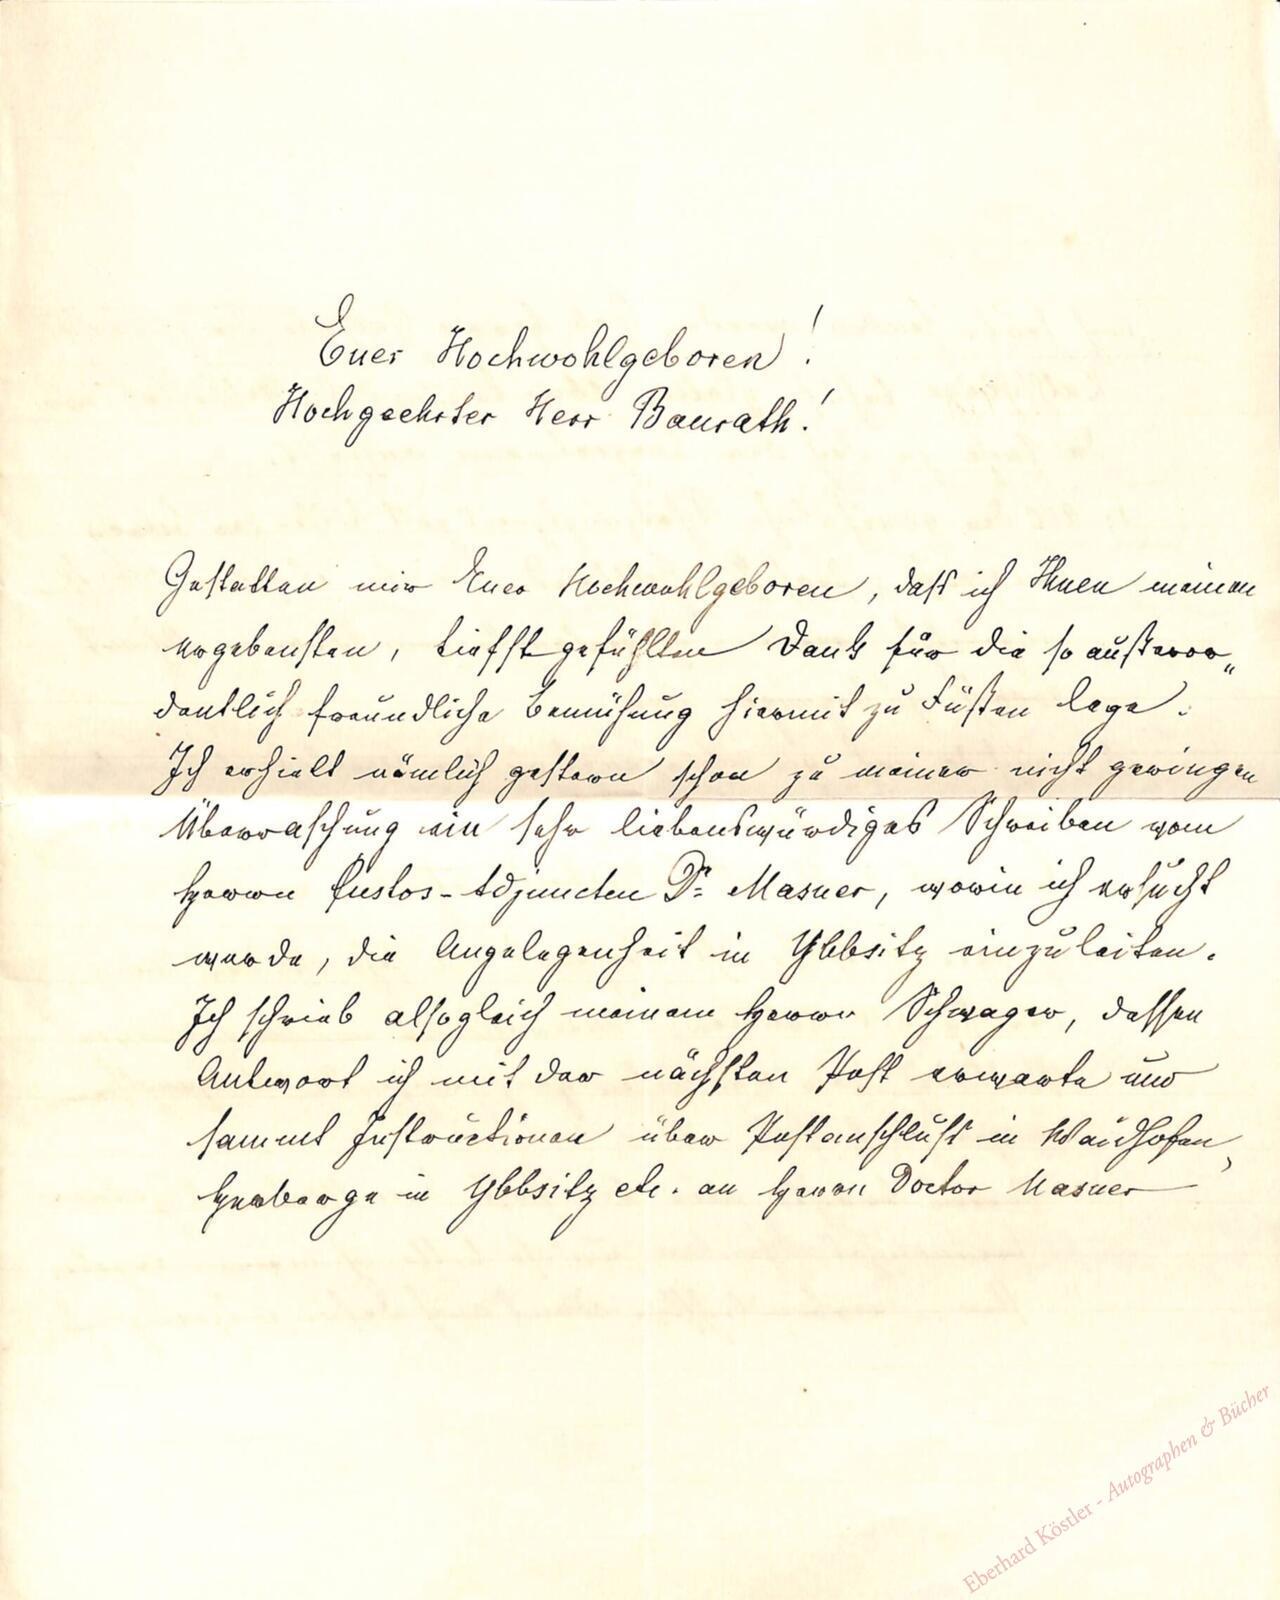 Euer Hochwohlgeboren!
Hochgeehrter Herr Baurath!
Gestatten mir Euer Hochwohlgeboren, daß ich Ihnen meinen
ergebensten, tiefst gefühlten Dank für die so außeror„
dentlich freundliche Bemühung hiermit zu Füßen lege.
Ich erhielt nämlich gestern schon zu meiner nicht geringen
Überraschung ein sehr liebenswürdiges Schreiben vom
Herrn Custos-Adjuncten Dr. Masner, worin ich ersucht
werde, die Angelegenheit in Ybbsitz einzuleiten.
Ich schrieb alsogleich meinem Herrn Schwager, dessen
Antwort ich mit der nächsten Post erwarte und
sammt Instructionen über Postanschluß in Waidhofen,
Herberge in Ybbsitz etc. an Herrn Doctor Masner
Eberhard Köstler - Autographen & Bücher